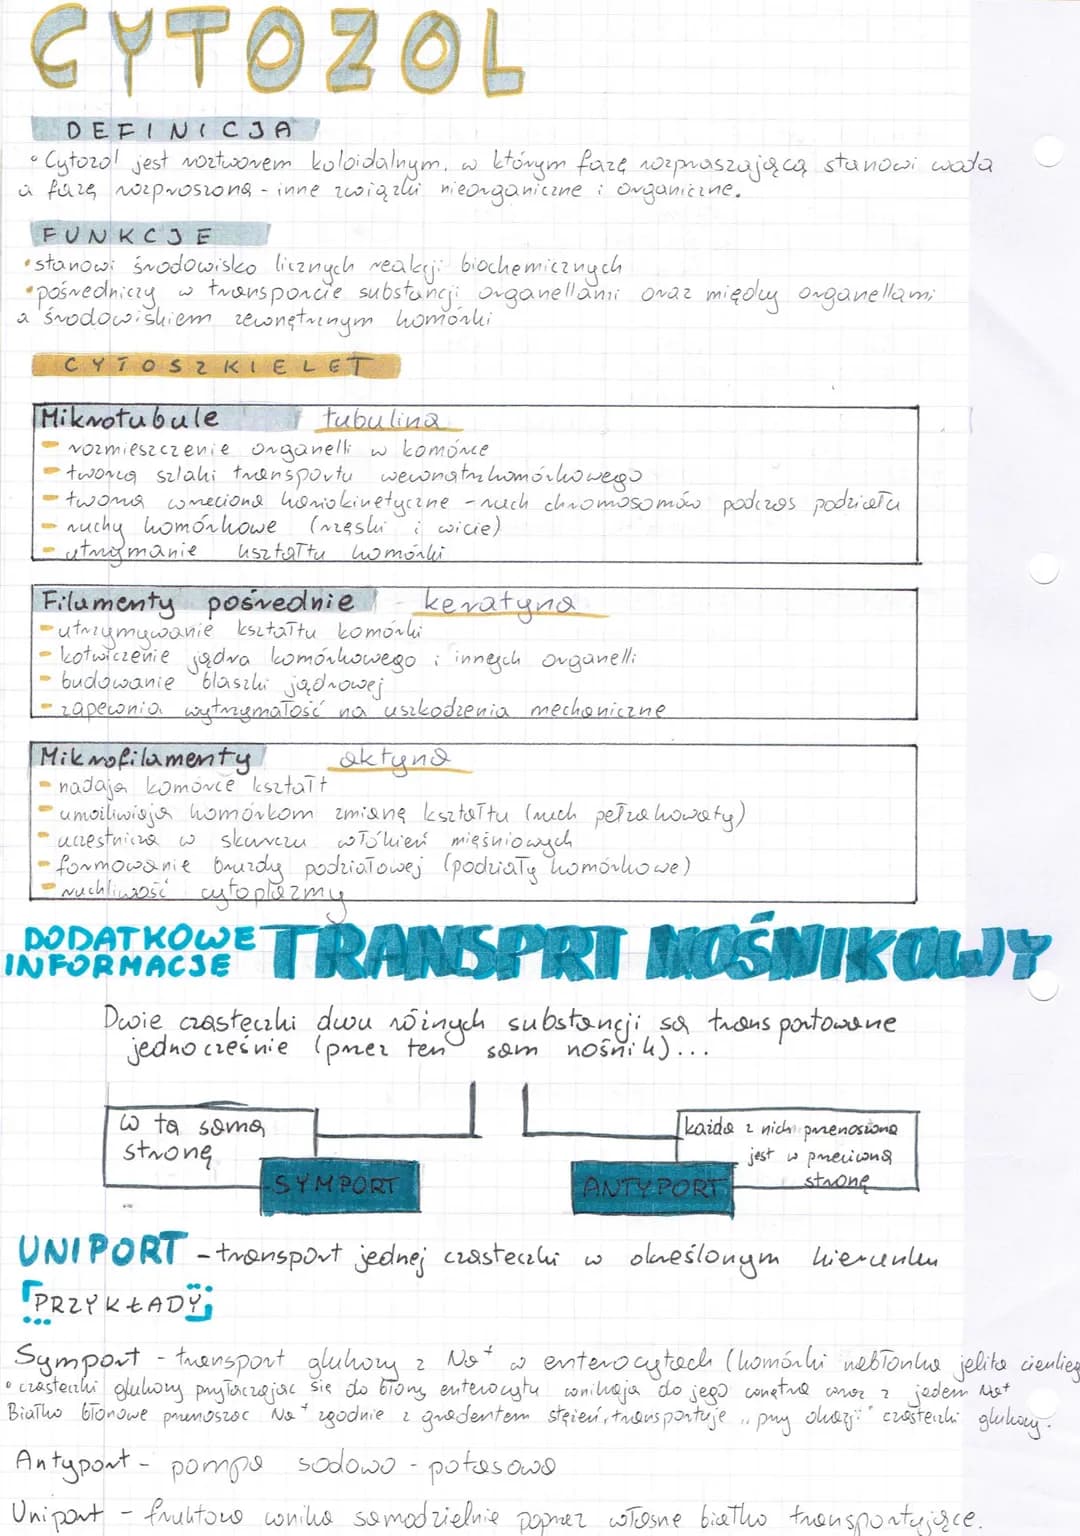 CYTOZOL
DEFINICJA
• Cytozol jest roztworem koloidalnym, w którym fazę rozpraszającą stanowi woda
a fazę rozproszoną - inne związki nieorganiczne i organiczne.
FUNKCJE
• stanowi środowisko licznych reakcji biochemicznych
• pośredniczy w transporcie substancji organellami oraz między organellami
a środowiskiem zewnętrznym komórki
CYTOSZKIELET
Mikrotubule tubulina
- rozmieszczenie organelli w komórce
- tworzą szlaki transportu wewnątrzkomórkowego
- tworzą wrzeciono kariokinetyczne - ruch chromosomów podczas podziału
- ruchy komórkowe (rzęski i wicie)
- utrzymanie kształtu komórki
Filamenty pośrednie - keratyna
- utrzymywanie kształtu komórki
- kotwiczenie jądra komórkowego i innych organelli
- budowanie blaszki jądrowej
- zapewnia wytrzymałość na uszkodzenia mechaniczne
Mikrofilamenty aktyna
- nadają komórce kształt
- umożliwiają komórkom zmianę kształtu (ruch pełzakowaty)
- uczestniczą w skurczu włókień mięśniowych
- formowanie bruzdy podziałowej (podziały komórkowe)
- ruchliwość cytoplazmy
DODATKOWE INFORMACJE
TRANSPRT NOŚNIKOWY
Dwie cząsteczki dwu różnych substancji są transportowane
jednocześnie (przez ten sam nośnik)...
w tą samą
stronę
SYMPORT
każda z nich przenoszona
jest w przeciwną
stronę
ANTYPORT
UNIPORT - transport jednej cząsteczki w określonym kierunku
PRZYKŁADY:
Symport - transport glukozy z Na+ w enterocytach (komórki nabłonka jelita cienkieg
• cząsteczki glukozy przyłączając się do błony enterocytu wnikają do jego wnętrza wraz z jodem Na+
Białko błonowe przenosząc Na+ zgodnie z gradentem stężeń, transportuje "przy okazji" cząsteczki glukozy.
Antyport - pompa sodowo - potasowa
Uniport - fruktoza wnika samodzielnie poprzez własne białko transportujące.